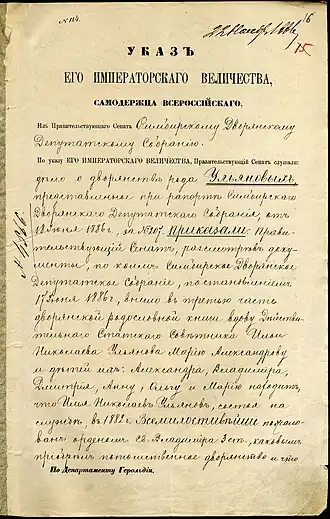 № 114.
16
15
УКАЗЪ
ЕГО ИМПЕРАТОРСКАГО ВЕЛИЧЕСТВА,
САМОДЕРЖЦА ВСЕРОССІЙСКАГО.
Изъ Правительствующаго Сената Симбирскому Дворянскому
Депутатскому Собранію.
По указу ЕГО ИМПЕРАТОРСКАГО ВЕЛИЧЕСТВА, Правительствующій Сенатъ слушали:
дѣло о дворянствѣ рода Ульяновыхъ,
представленное при рапортѣ Симбирскаго
Дворянскаго Депутатскаго Собранія, отъ
18 Іюня 1886 г., за № 107. Приказали: Прави-
тельствующій Сенатъ, разсмотрѣвъ доку-
менты, по коимъ Симбирское Дворянское
Депутатское Собраніе, постановленіемъ
17 Іюня 1886 г., внесло въ третью часть
дворянской родословной книги вдову Дѣйстви-
тельнаго Статскаго Совѣтника Ильи
Николаева Ульянова Марію Александрову
и дѣтей ихъ: Александра, Владиміра,
Дмитрія, Анну, Ольгу и Марію находитъ,
что Илья Николаевъ Ульяновъ, состоя на
службѣ, въ 1882 г. Всемилостивѣйше пожало-
ванъ орденомъ Св. Владиміра 3 ст., каковымъ
пріобрѣлъ потомственное дворянство и что
По Департаменту Герольдіи.